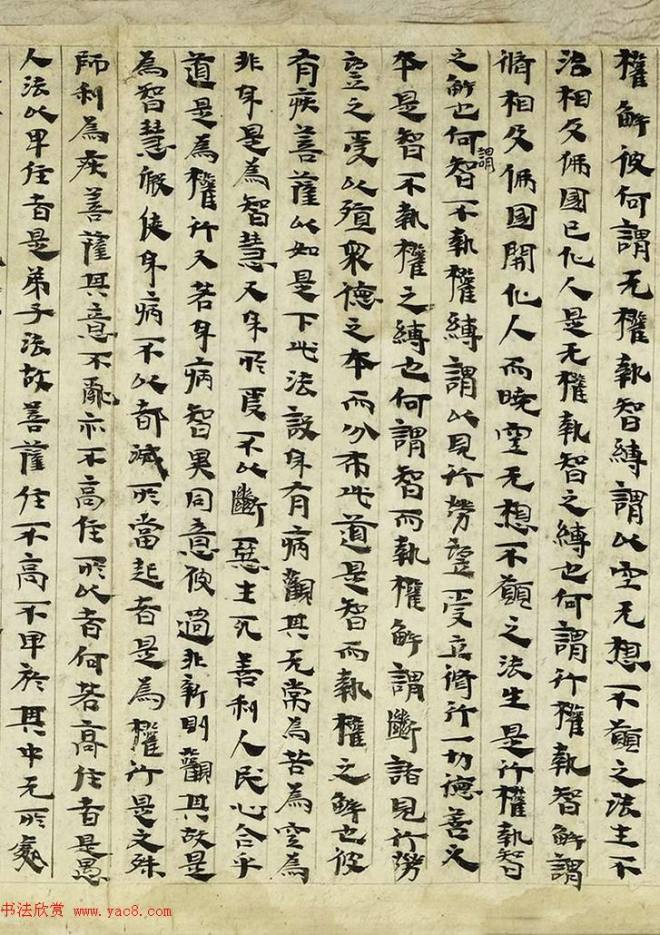 權解彼何謂无權執智縛謂以空无想不願之法生不
治相及佛國已化人是无權執智之縛也何謂行權執智解謂
脩相及佛國開化人而曉空无想不願之法生是行權執智
之解也何謂智不執權縛謂以見行勞望受立脩行一切德善之
本是智不執權之縛也何謂智而執權解謂斷諸見行勞
望之受以殖眾德之本而分布此道是智而執權之解也彼
有疾菩薩以如是下此法設身有病觀其无常為苦為空為
非身是為智慧又身所受不以斷惡生死善利人民心合乎
道是為權行又若身病智異同意彼過非新則觀其故是
為智慧假使身病不以都滅所當起者是為權行是文殊
師利為疾菩薩其意不亂亦不高住所以者何若高住者是愚
人法以卑住者是弟子法故菩薩住不高不卑於其中无所處
书法欣赏 www.yac8.com